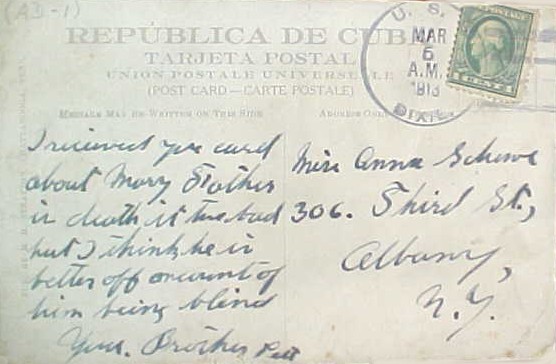 (AD-1)
REPÚBLICA DE CUBA
TARJETA POSTAL
UNION POSTALE UNIVERSELLE
(POST CARD—CARTE POSTALE)
MESSAGE MAY BE WRITTEN ON THIS SIDE
ADDRESS ONLY
U. S.
MAR
6
A.M.
1913
DIXIE
POSTAGE
1 CENT 1
I received your card
about Mary Father
in death it is too bad
but I think he is
better off on account of
him being blind
Your Brother
Miss Anna Schewe
306. Third St.,
Albany,
N.Y.